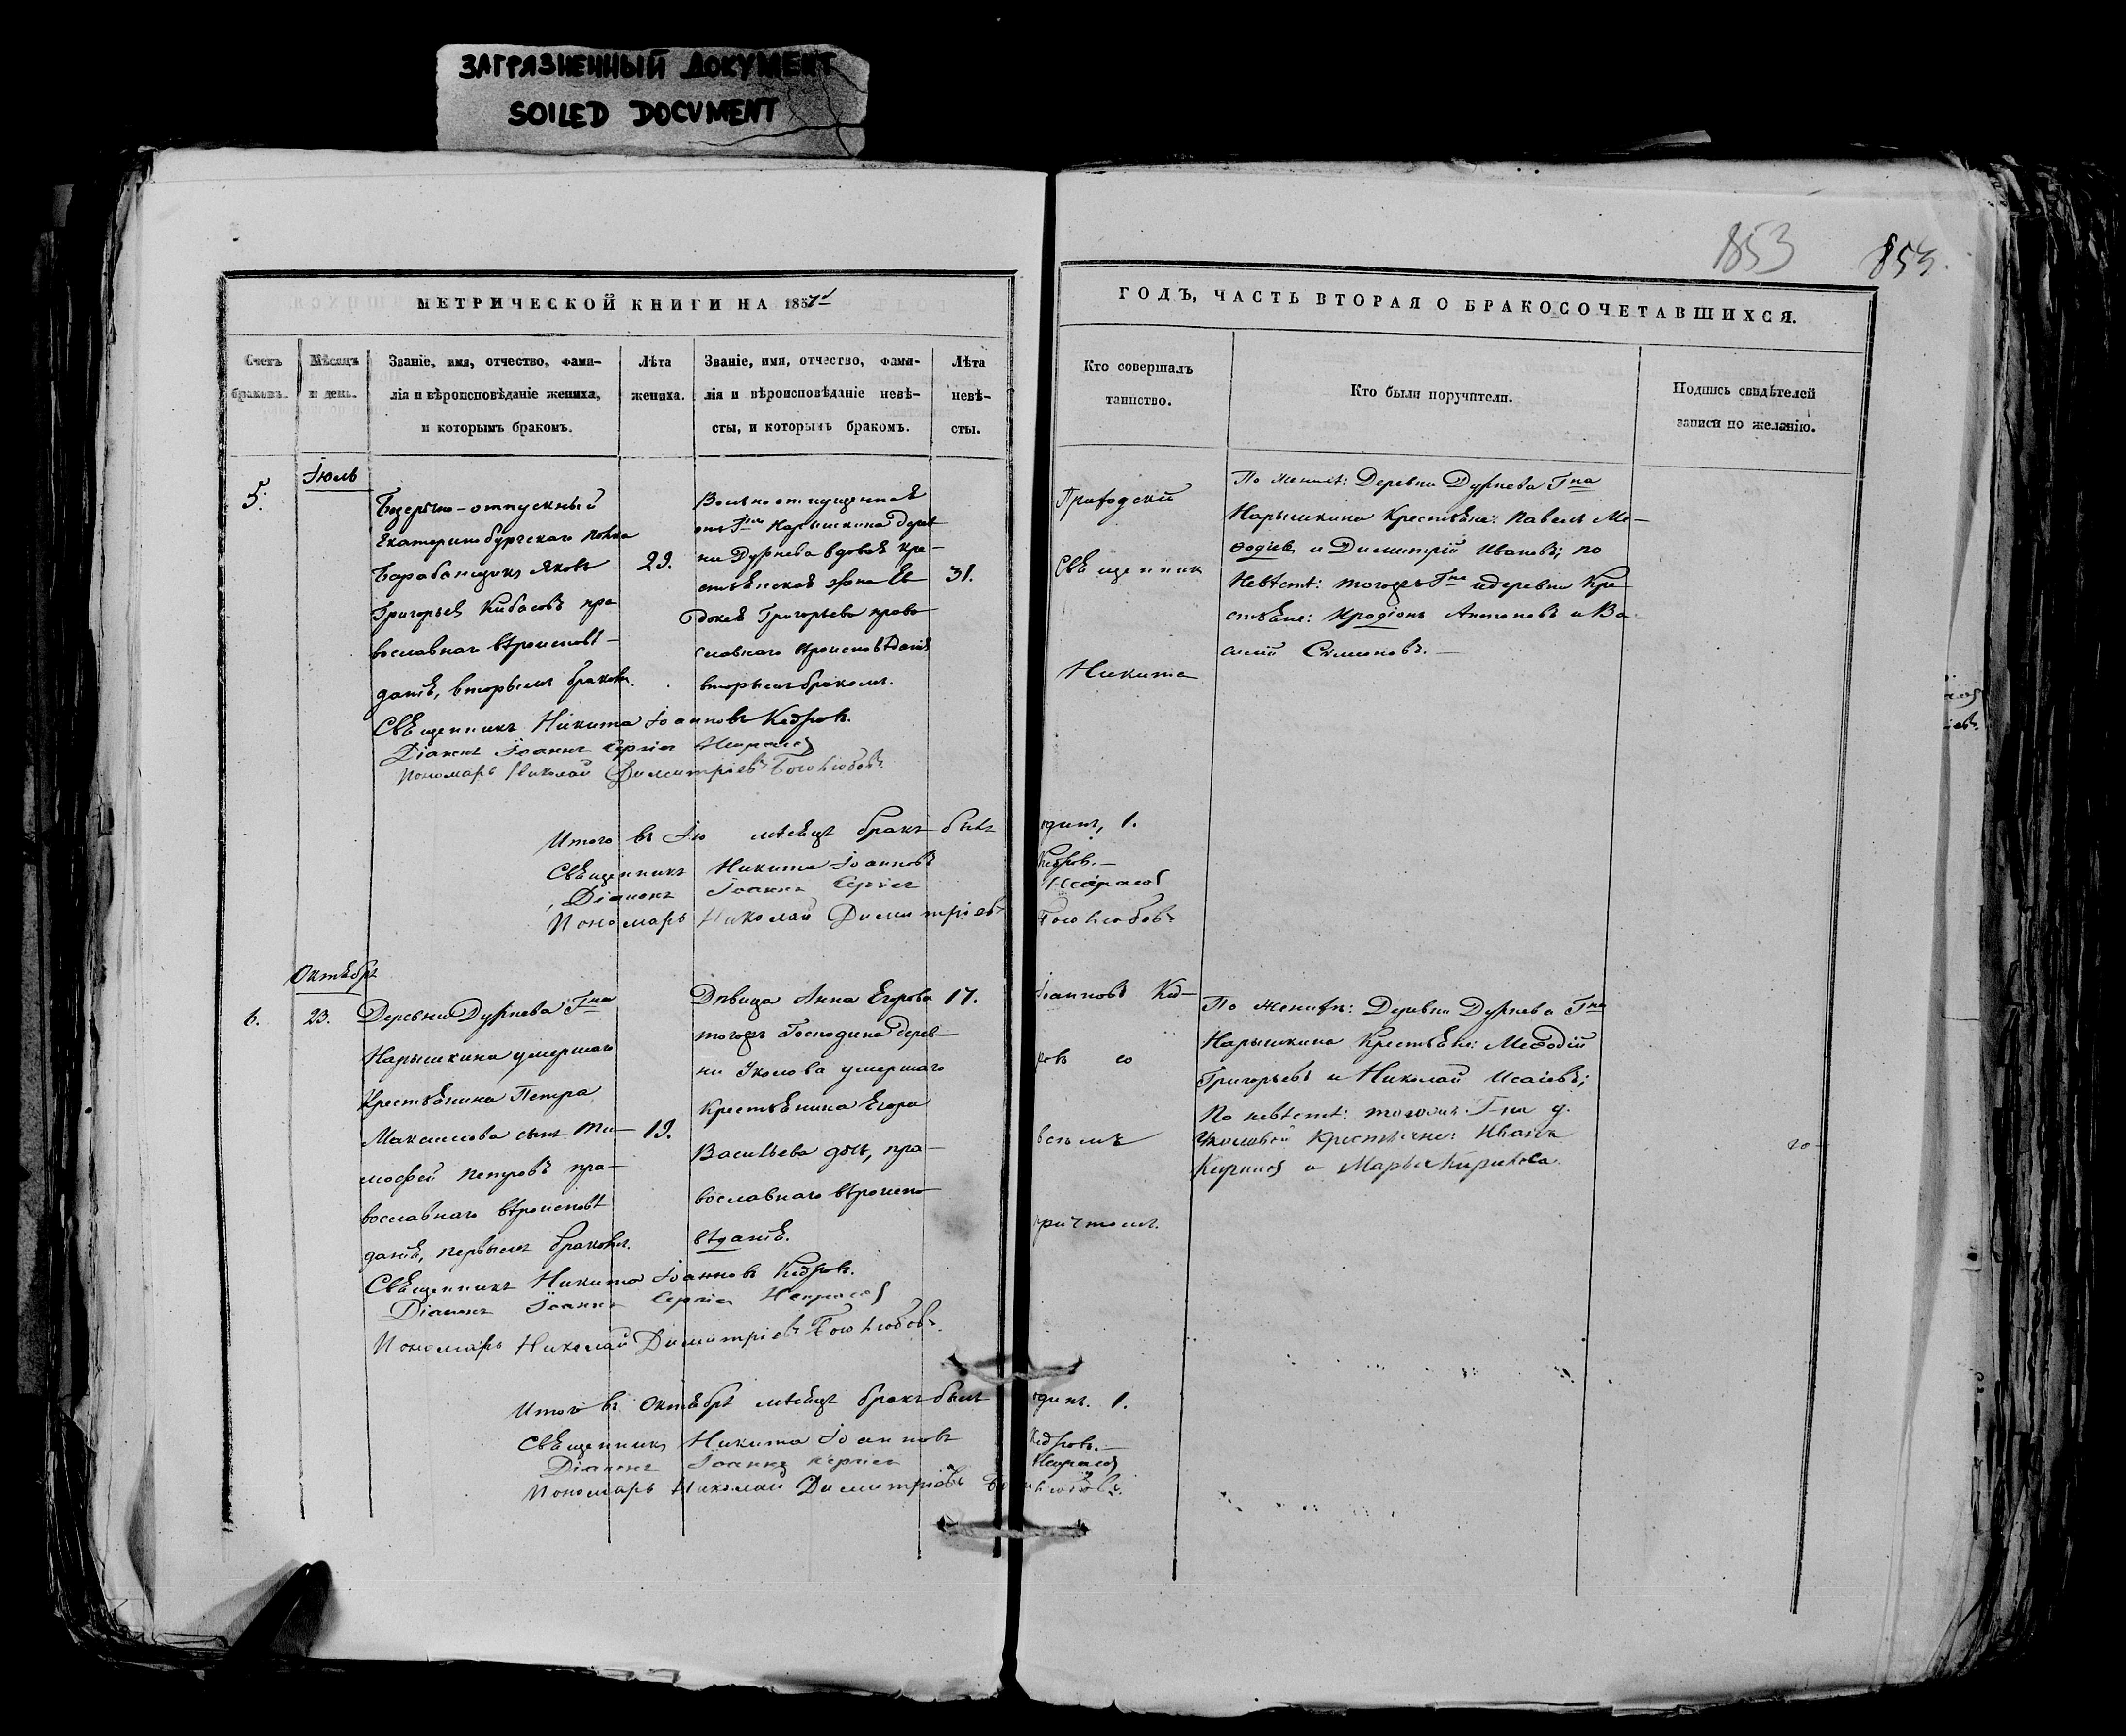 ЗАГРЯЗНЕННЫЙ ДОКУМЕНТ
SOILED DOCUMENT
853
853.
МЕТРИЧЕСКОЙ КНИГИ НА 1857й
ГОДЪ, ЧАСТЬ ВТОРАЯ О БРАКОСОЧЕТАВШИХСЯ.
Счетъ браковъ.
Мѣсяцъ и день.
Званіе, имя, отчество, фами-
лія и вѣроисповѣданіе жениха,
и которымъ бракомъ.
Лѣта
жениха.
Званіе, имя, отчество, фами-
лія и вѣроисповѣданіе невѣ-
сты, и которымъ бракомъ.
Лѣта
невѣ-
сты.
Кто совершалъ
таинство.
Кто были поручители.
Подпись свидѣтелей
записи по желанію.
5.
Іюль
Безсрочно-отпускный
Екатеринбургскаго полка
Барабанщикъ Яковъ
Григорьевъ Кибасовъ пра
вославнаго вѣроисповѣ-
данія, вторымъ бракомъ.
29.
Вольноотпущенная
отъ Гна Нарышкина дерев
ни Дурнева вдовая кре-
стьянская жона Ев
докея Григорьева право
славнаго вѣроисповѣданія
вторымъ бракомъ.
31.
Приходскій
Священникъ
Никита
По женихѣ: Деревни Дурнева Гна
Нарышкина Крестьяне: Павелъ Ме-
ѳодіевъ и Димитрій Ивановъ; по
Невѣстѣ: тогожъ Гна и деревни Кре
стьяне: Иродіонъ Антоновъ и Ва-
силій Симоновъ.
Священникъ Никита Іоанновъ Кедровъ.
Діаконъ Іоаннъ Сергіевъ Некрасов
Пономарь Николай Димитріевъ Боголюбовъ
Итого въ Ію мѣсяцѣ бракъ былъ одинъ, 1.
Священникъ Никита Іоанновъ Кедровъ.
Діаконъ Іоаннъ Сергіев Некрасов
Пономарь Николай Димитріевъ Боголюбовъ
Октябрь
6.
23.
Деревни Дурнева Гна
Нарышкина умершаго
Крестьянина Петра
Максимова сынъ Ти-
мофей Петровъ пра-
вославнаго вѣроисповѣ
данія, первымъ бракомъ.
19.
Дѣвица Анна Егорова
тогожъ Господина дерев-
ни Уколова умершаго
Крестьянина Егора
Васильева дочь, пра-
вославнаго вѣроиспо
вѣданія.
17.
Іоанновъ Кед-
ровъ со
всѣмъ
причтомъ.
По женихѣ: Деревни Дурнева Гна
Нарышкина Крестьяне: Меѳодій
Григорьевъ и Николай Исаіевъ;
По невѣстѣ: тогожъ Г-на д.
Уколовой Крестьяне: Иванъ
Священникъ Никита Іоанновъ Кедровъ.
Діаконъ Іоаннъ Сергіев Некрасов
Пономарь Николай Димитріевъ Боголюбовъ.
Итого въ Октябрѣ мѣсяцѣ бракъ былъ одинъ. 1.
Священникъ Никита Іоанновъ Кедровъ.
Діаконъ Іоаннъ Сергіев Некрасов
Пономарь Николай Димитріевъ Боголюбовъ.